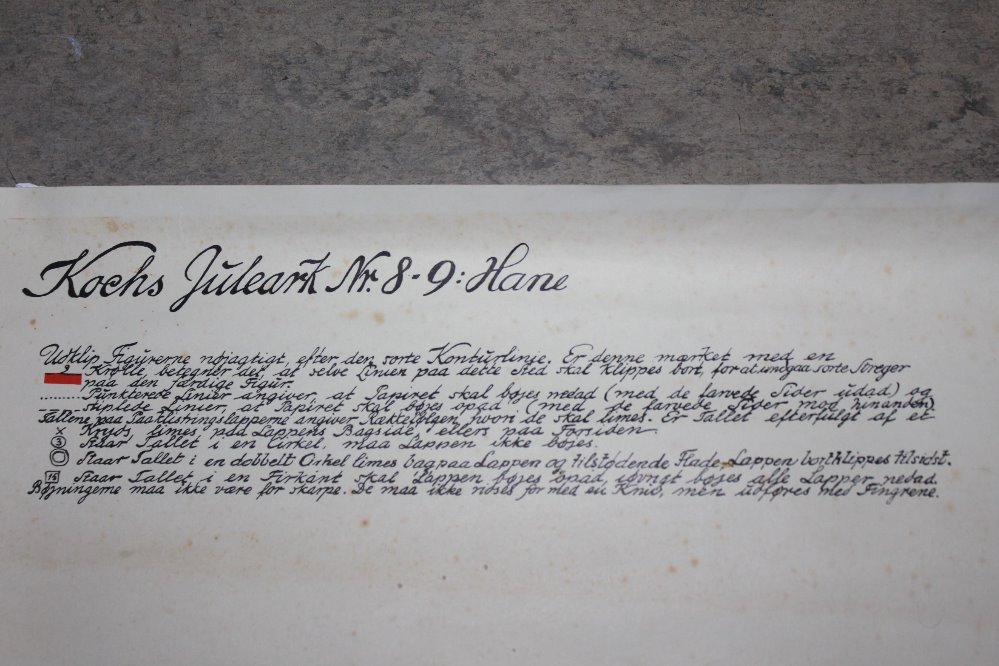 Kochs Juleark Nr. 8-9: Hane
Udklip Figurerne nøjagtigt, efter den sorte Konturlinje. Er denne mærket med en
2 Krølle, betegner det, at selve Linien paa dette Sted skal klippes bort, for at undgaa sorte Streger
paa den færdige Figur.
Punkterede Linier angiver, at Papiret skal bøjes nedad (med de farvede Sider udad) og
Stiplede Linier, at Papiret skal bøjes opad (med de farvede Sider mod hinanden)
Tallene paa Paaklæbningslapperne angiver Rækkefølgen, hvori de skal limes. Er Tallet efterfulgt af et
x Kryds, limes paa Lappens Bagside, ellers paa Forsiden
3 Staar Tallet i en Cirkel, maa Lappen ikke bøjes.
Staar Tallet i en dobbelt Cirkel limes bagpaa Lappen og tilstødende Flade. Lappen bortklippes tilsidst.
Staar Tallet i en Firkant skal Lappen bøjes opad, iøvrigt bøjes alle Lapper nedad
Bøjningerne maa ikke være for skarpe. De maa ikke ridses for med en Kniv, men udføres med Fingrene.